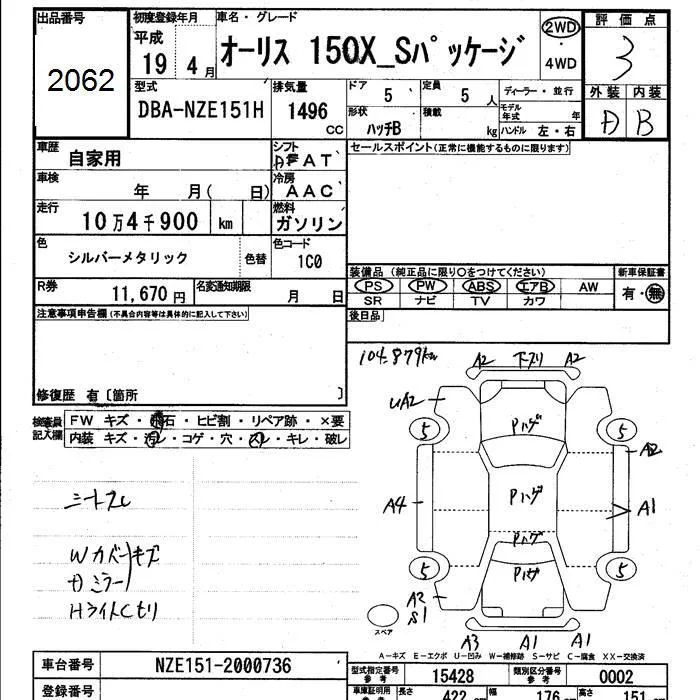 出品番号
2062
初度登録年月
平成
19 4月
車名・グレード
オーリス 150X_Sパッケージ
2WD
・
4WD
評価点
3
外装 内装
A B
型式
DBA-NZE151H
排気量
1496
CC
ドア
5
定員
5 人
形状
ハッチB
積載
kg
ディーラー・並行
モデル年式 年
ハンドル 左・右
車歴
自家用
シフト
AT
セールスポイント(正常に機能するものに限ります)
車検
年 月( 日)
冷房
AAC
走行
10万4千900 km
燃料
ガソリン
色
シルバーメタリック
色替
色コード
1C0
装備品(純正品に限り○をつけてください)
PS PW ABS エアB AW
SR ナビ TV カワ
新車保証書
有・無
R券
11,670円
名変通知期限
月 日
後日品
注意事項申告欄(不具合内容等は具体的に記入して下さい)
修復歴 有〔箇所 〕
検査員記入欄
FW キズ・飛石・ヒビ割・リペア跡・×要
内装 キズ・汚レ・コゲ・穴・スレ・キレ・破レ
シートスレ
Wカバーキズ
ミラー
HライトCもり
104.879km
A2 下スリ A2
UA2
5 Pハゲ 5
A2
A4 Pハゲ A1
Pハゲ
5 Pハゲ 5
A2
S1
スペア
A3 A1 A1
A−キズ E−エクボ U−凹み W−補修跡 S−サビ C−腐食 XX−交換済
車台番号
NZE151-2000736
型式指定番号
参考
15428
類別区分番号
参考
0002
登録番号
車庫証明用
参考
長さ
422 cm
幅
176 cm
高さ
151 cm